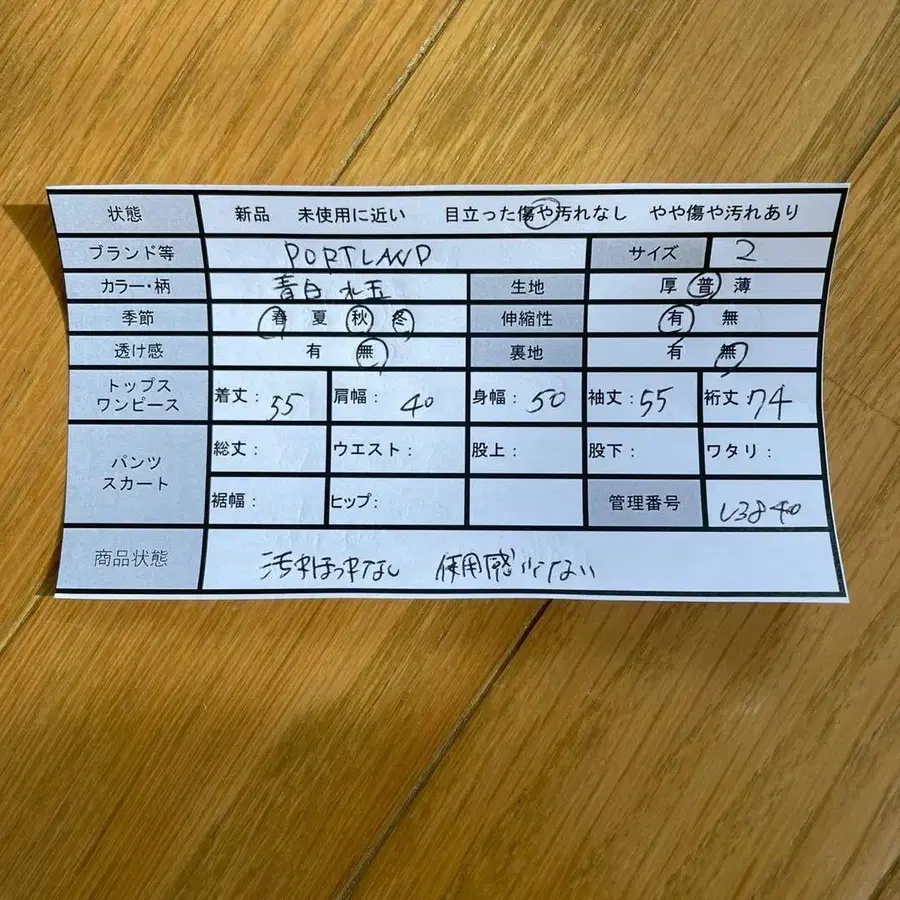 状態 新品 未使用に近い 目立った傷や汚れなし やや傷や汚れあり
ブランド等 PORTLAND サイズ 2
カラー・柄 青白 水玉 生地 厚 普 薄
季節 春 夏 秋 冬 伸縮性 有 無
透け感 有 無 裏地 有 無
トップス ワンピース 着丈: 55 肩幅: 40 身幅: 50 袖丈: 55 裄丈: 74
パンツ スカート 総丈: ウエスト: 股上: 股下: ワタリ:
裾幅: ヒップ: 管理番号 L3840
商品状態 汚れほつれなし 使用感 少ない